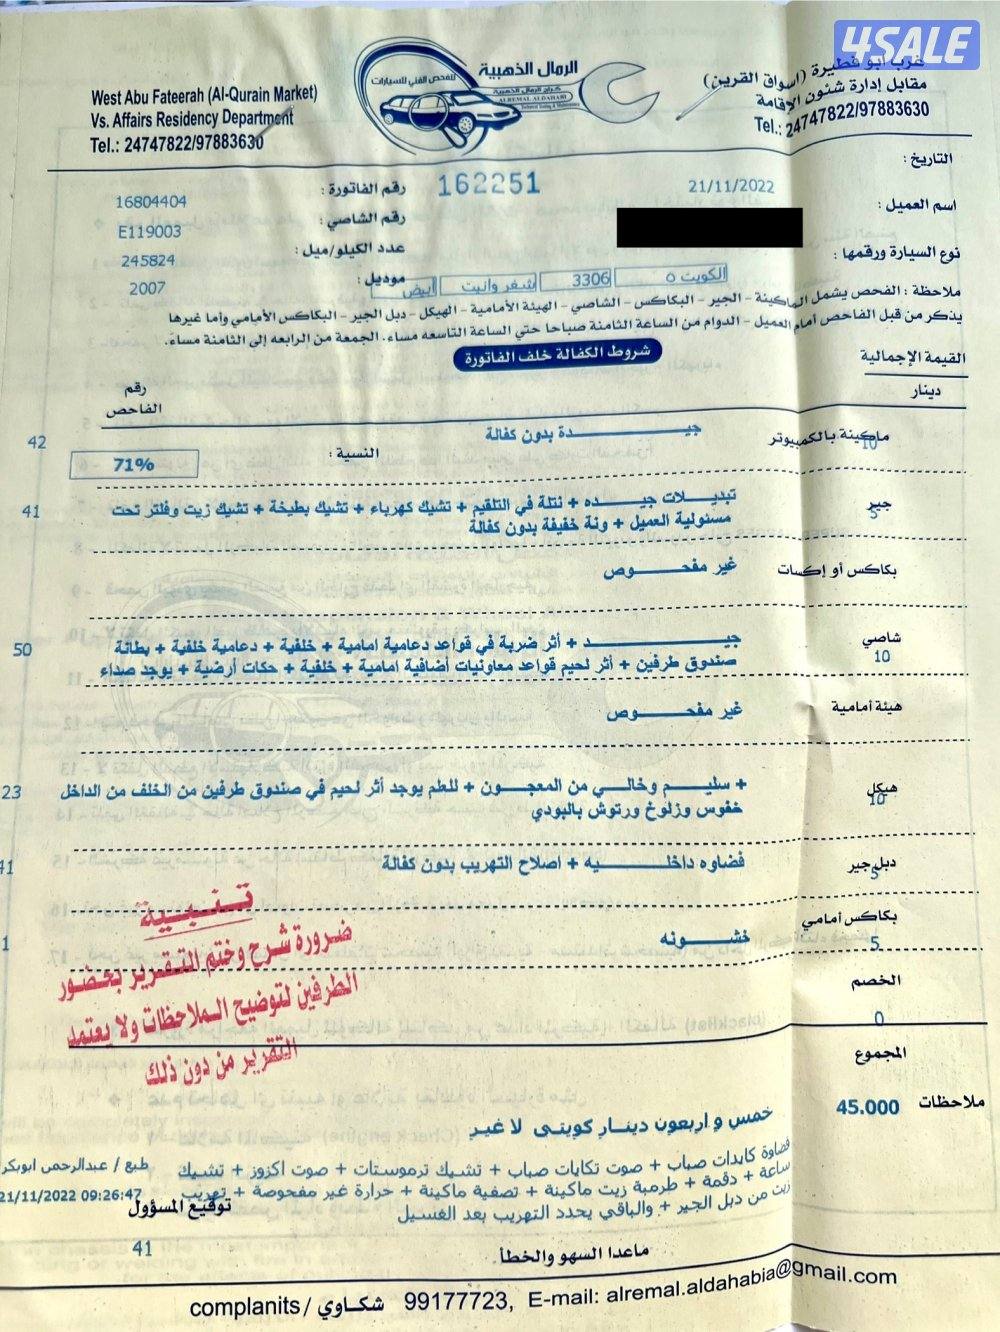 4SALE
West Abu Fateerah (Al-Qurain Market)
Vs. Affairs Residency Department
Tel.: 24747822/97883630
للفحص الفني للسيارات
الرمال الذهبية
كراج الرمال الذهبية
ALREMAL ALDAHABI
Technical Testing & Maintenance
غرب ابو فطيرة (اسواق القرين)
مقابل إدارة شئون الإقامة
Tel.: 24747822/97883630
التاريخ :
21/11/2022
رقم الفاتورة :
162251
16804404
اسم العميل :
رقم الشاصي :
E119003
نوع السيارة ورقمها :
عدد الكيلو/ميل :
245824
الكويت ٥
3306
شفر وانيت
أبيض
موديل :
2007
ملاحظة : الفحص يشمل الماكينة - الجير - البكاكس - الشاصي - الهيئة الأمامية - الهيكل - دبل الجير - البكاكس الأمامي وأما غيرها
يذكر من قبل الفاحص أمام العميل - الدوام من الساعة الثامنة صباحا حتى الساعة التاسعه مساء. الجمعة من الرابعه إلى الثامنة مساء.
شروط الكفالة خلف الفاتورة
القيمة الإجمالية
دينار
رقم الفاحص
ماكينة بالكمبيوتر
10
جيـــدة بدون كفالة
42
النسبة :
71%
جير
5
تبديـلات جيـده + نتلة في التلقيم + تشيك كهرباء + تشيك بطيخة + تشيك زيت وفلتر تحت
مسئولية العميل + ونة خفيفة بدون كفالة
41
بكاكس أو إكسات
غير مفحـــوص
شاصي
10
جيـــد + أثر ضربة في قواعد دعامية امامية + خلفية + دعامية خلفية + بطانة
صندوق طرفين + أثر لحيم قواعد معاونيات أضافية امامية + خلفية + حكات أرضية + يوجد صداء
50
هيئة أمامية
غير مفحـــوص
هيكل
10
+ سليـــم وخالي من المعجون + للعلم يوجد أثر لحيم في صندوق طرفين من الخلف من الداخل
خفوس وزلوخ ورتوش بالبودي
23
دبل جير
5
فضاوه داخلـــيه + اصلاح التهريب بدون كفالة
41
بكاكس أمامي
5
خشـــونه
1
تنبية
ضرورة شرح وختم التقرير بحضور
الطرفين لتوضيح الملاحظات ولا يعتمد
التقرير من دون ذلك
الخصم
0
المجموع
45.000
ملاحظات
خمس و اربعون دينار كويتى لا غير
فضاوة كايدات صباب + صوت تكايات صباب + تشيك ترموستات + صوت اكزوز + تشيك
ساعة + دقمة + طرمبة زيت ماكينة + تصفية ماكينة + حرارة غير مفحوصة + تهريب
زيت من دبل الجير + والباقي يحدد التهريب بعد الغسيل
طبع / عبدالرحمن ابوبكر
21/11/2022 09:26:47
توقيع المسؤول
41
ماعدا السهو والخطأ.
complanits / شكاوي 99177723, E-mail: alremal.aldahabia@gmail.com